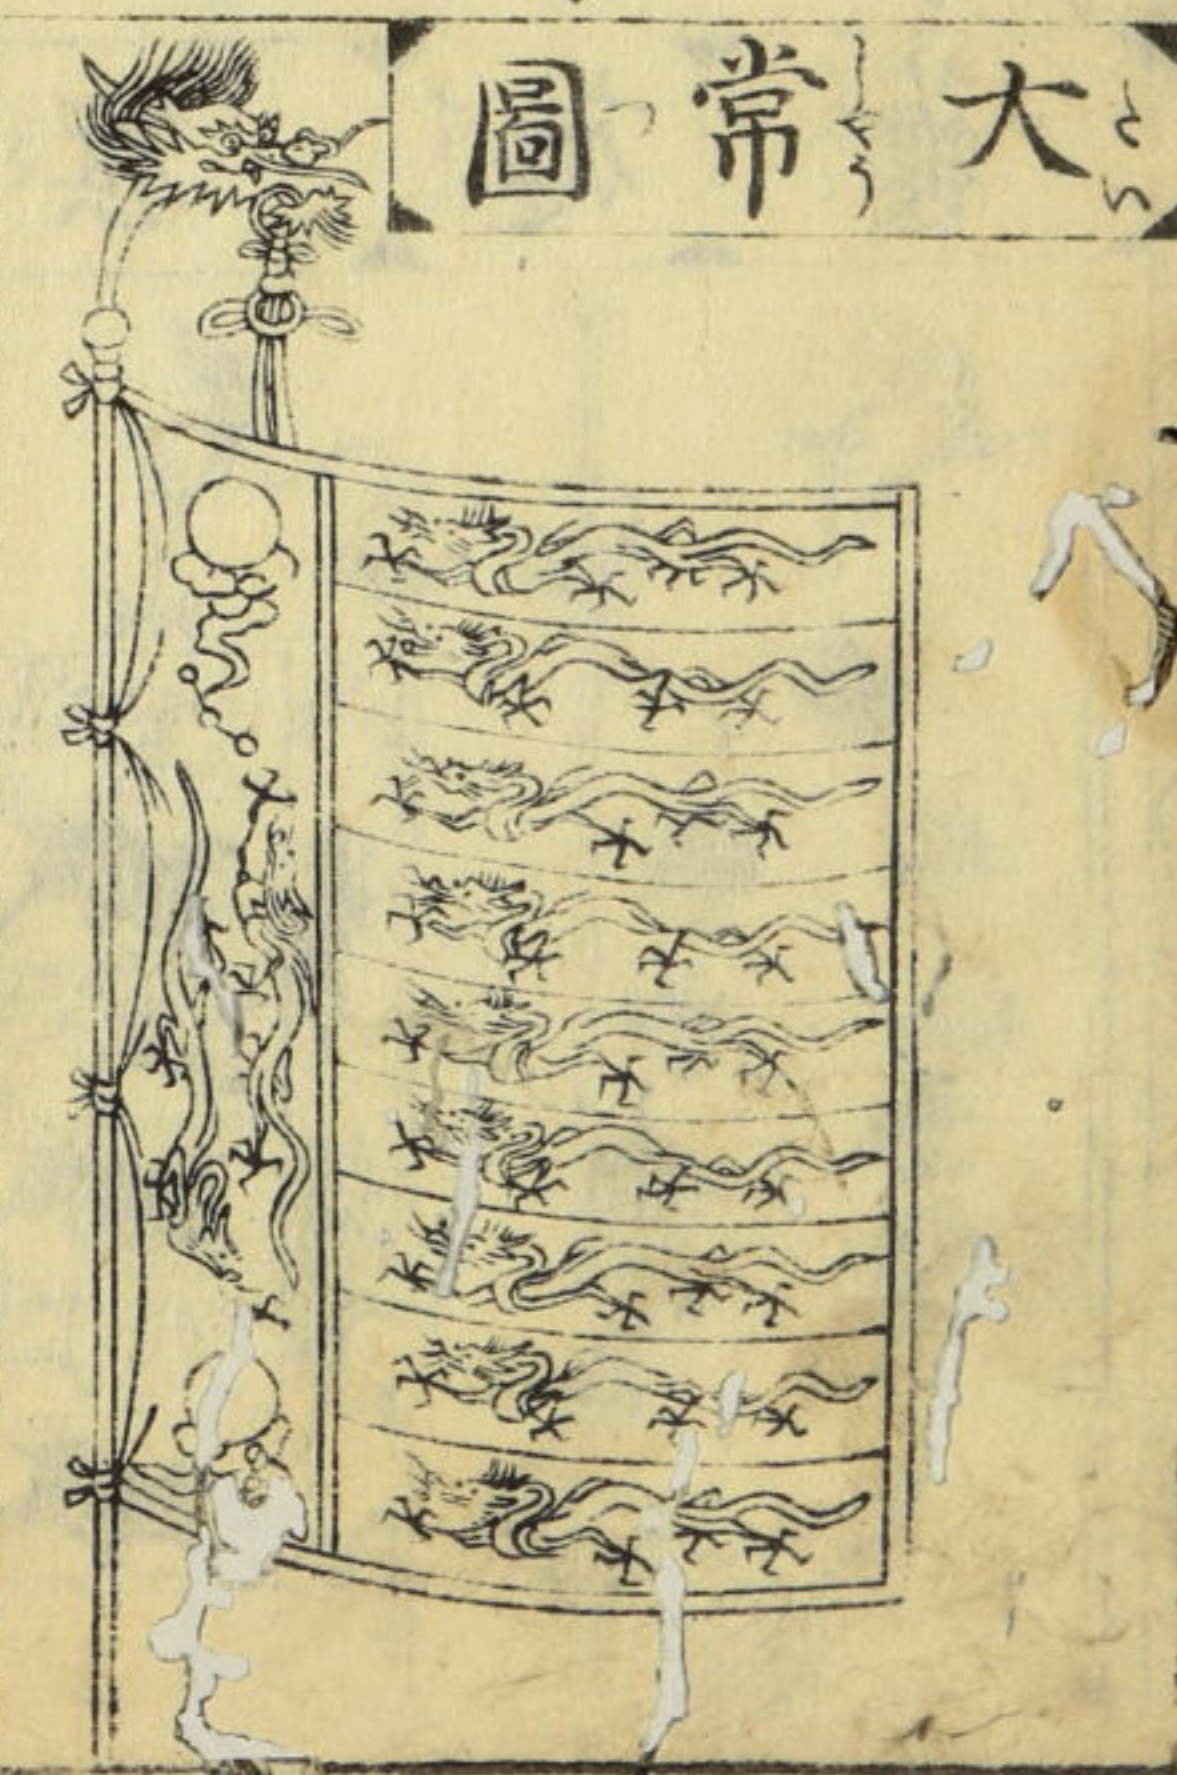 大常圖
たいしやうつ